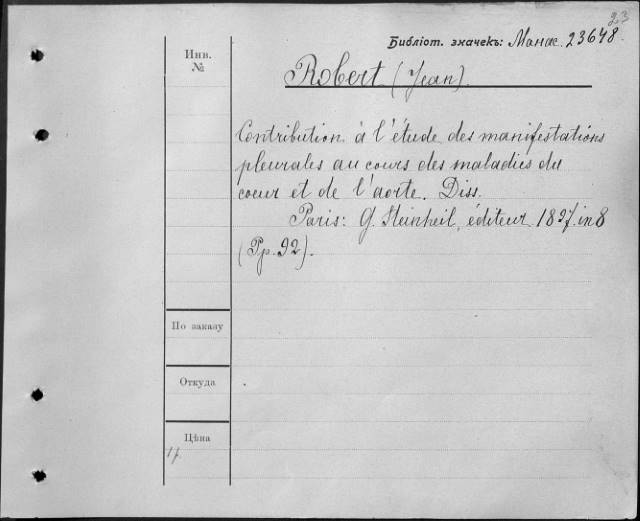 23
Библіот. значекъ: Манас. 23648.
Инв.
№
Robert (Jean).
Contribution à l'étude des manifestations
pleurales au cours des maladies du
coeur et de l'aorte. Diss.
Paris: G. Steinheil, éditeur 1897. in 8
(Pp. 92).
По заказу
Откуда
Цѣна